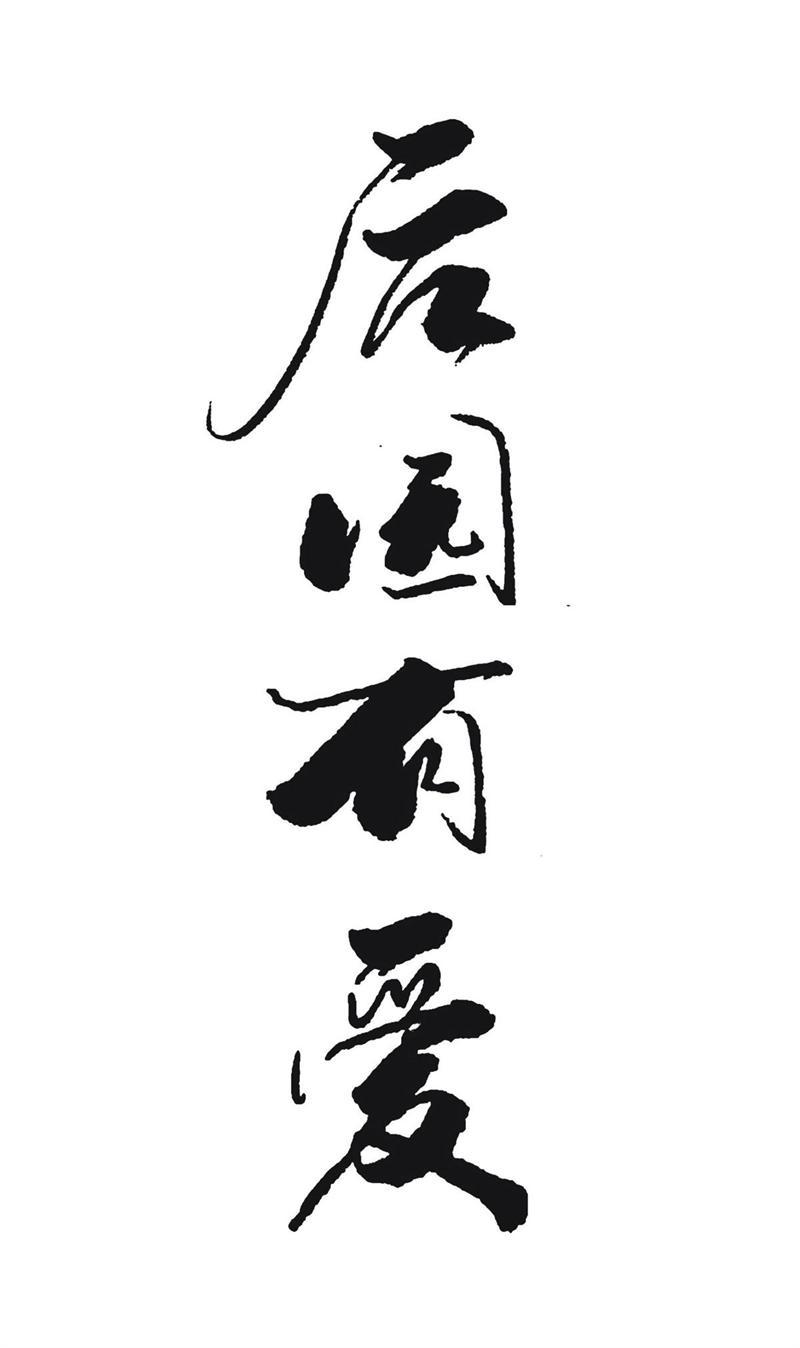 后园有爱